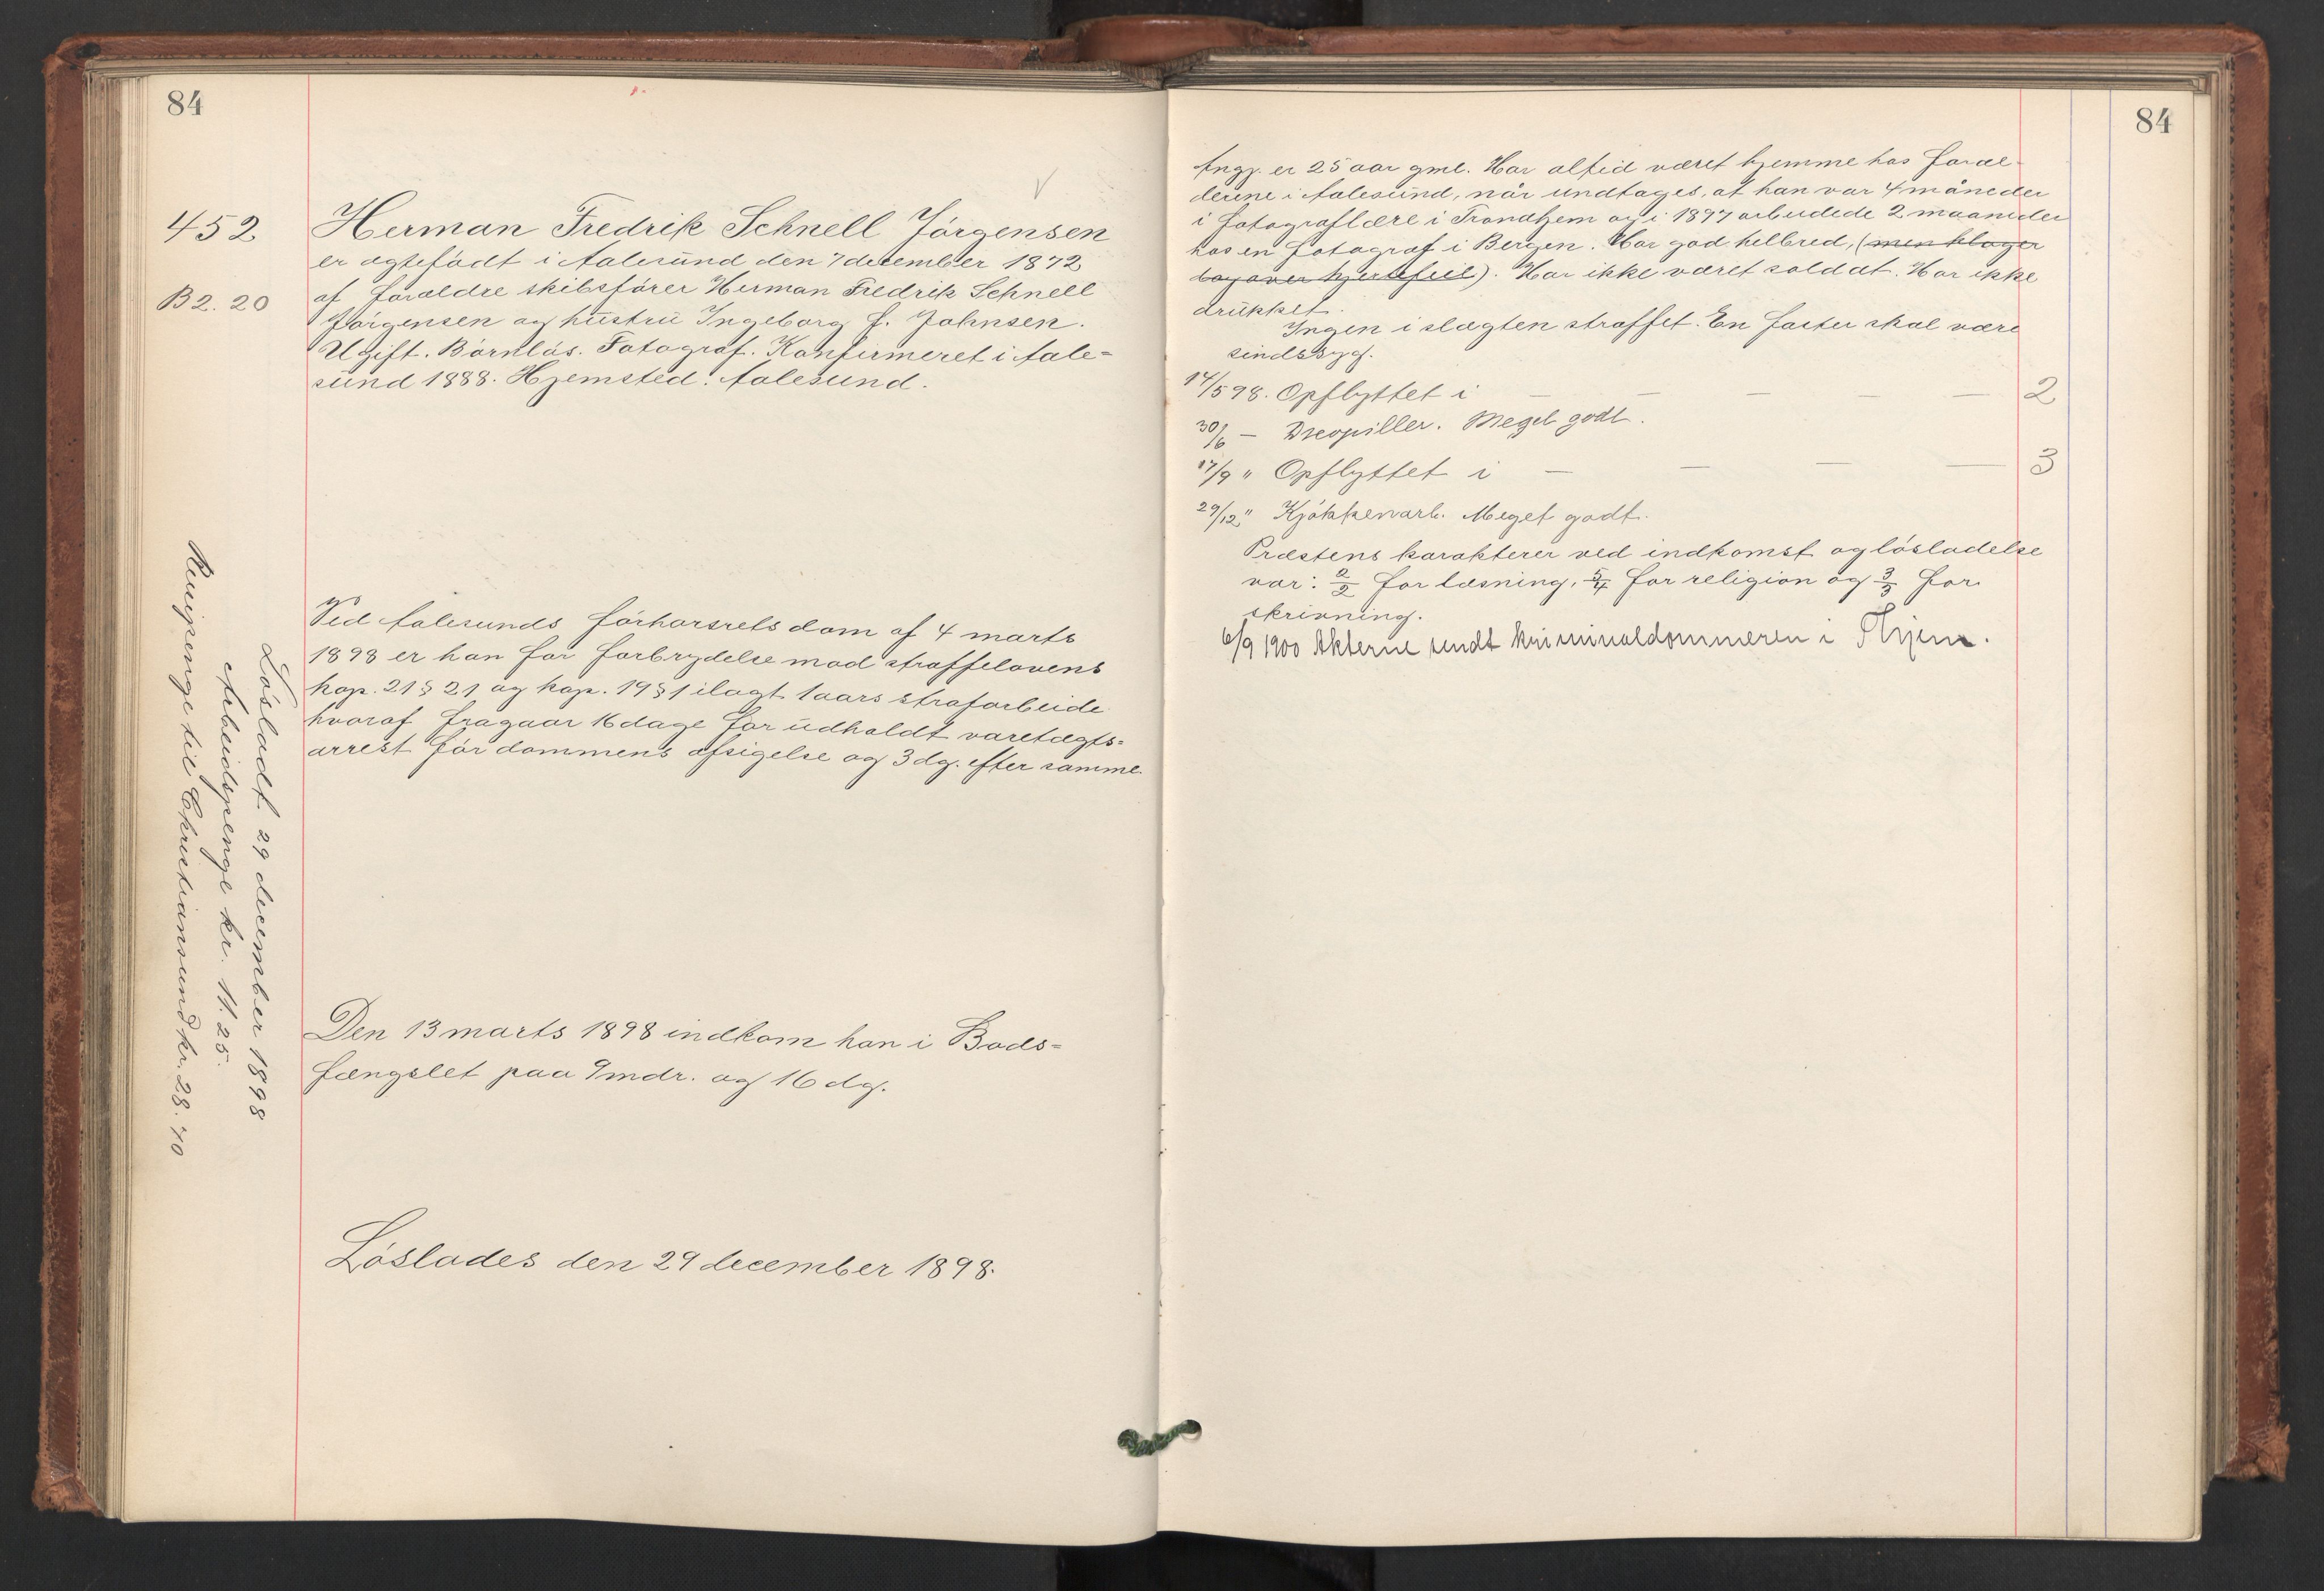 84
452
B2. 20
Herman Fredrik Schnell Jörgensen
er ægtefödt i Aalesund den 7 december 1872
af forældre skibsförer Herman Fredrik Schnell
Jörgensen og hustru Ingeborg f. Johnsen.
Ugift. Barnlös. Fotograf. Konfirmeret i Aale=
sund 1888. Hjemsted: Aalesund.
Ved Aalesunds forhörsrets dom af 4 marts
1898 er han for forbrydelse mod straffelovens
kap. 21 § 21 og kap. 19 § 1 ilagt 1 aars strafarbeide
hvoraf fragaar 16 dage for udholdt varetægts=
arrest för dommens afsigelse og 3 dg. efter samme.
Den 13 marts 1898 indkom han i Bods=
fængslet paa 9 mdr. og 16 dg.
Löslades den 29 december 1898.
Lösladt 29 december 1898
Arbeidspenge kr. 11.25.
Reisepenge til Christiansund kr. 28.70
84
Angj. er 25 aar gml. Har altid været hjemme hos foræl-
drene i Aalesund, når undtages, at han var 4 måneder
i fotograflære i Trondhjem og i 1897 arbeidede 2 maaneder
hos en fotograf i Bergen. Har god helbred, (men klager
dog over hjertefeil). Har ikke været soldat. Har ikke
drukket.
Ingen i slægten straffet. En faster skal være
sindssyg.
17/5 98. Opflyttet i — — — — 2
30/6 — Meget godt.
17/9 " Opflyttet i — — — — 3
29/12 " Kjökkenarb. Meget godt.
Præstens karakterer ved indkomst og lösladelse
var: 2/2 for læsning, 5/4 for religion og 3/3 for
skrivning.
6/9 1900 Akterne sendt kriminaldommeren i Thjem.